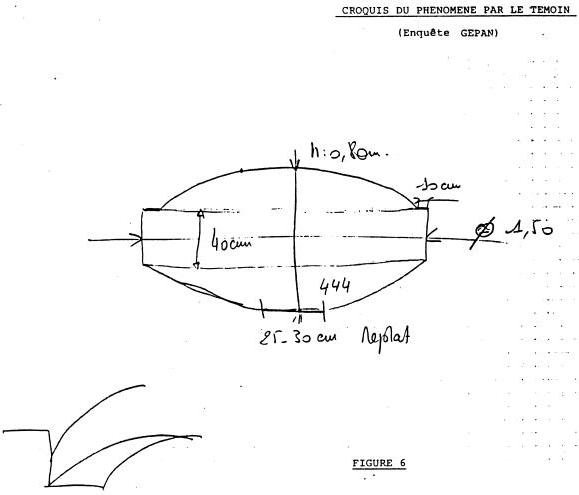 CROQUIS DU PHENOMENE PAR LE TEMOIN
(Enquête GEPAN)
h:0,80m.
10cm
40cm
Ø 1,50
444
25-30cm Replat
FIGURE 6